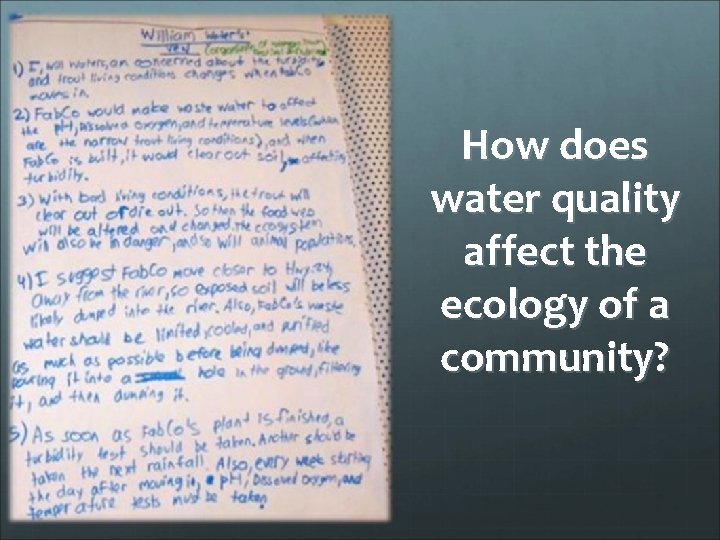 William Waters'
VEN (organisate of
1) I, Will Waters, am concerned about the turbidity
and trout living conditions changes when FabCo
moves in.
2) FabCo would make waste water to affect
the pH, Dissolved oxygen, and temperature levels (which
are the narrow trout living conditions), and when
FabCo is built, it would clear out soil, affecting
turbidity.
3) With bad living conditions, the trout will
clear out or die out. So then the food web
will be altered and changed. The ecosystem
will also be in danger, and so will animal populations.
4) I suggest FabCo move closer to Hwy. 24,
away from the river, so exposed soil will be less
likely dumped into the river. Also, FabCo's waste
water should be limited, cooled, and purified
as much as possible before being dumped, like
pouring it into a hole in the ground, filtering
it, and then dumping it.
5) As soon as FabCo's plant is finished, a
turbidity test should be taken. Another should be
taken the next rainfall. Also, every week starting
the day after moving in, pH, Dissolved Oxygen, and
temperature tests must be taken.
How does
water quality
affect the
ecology of a
community?